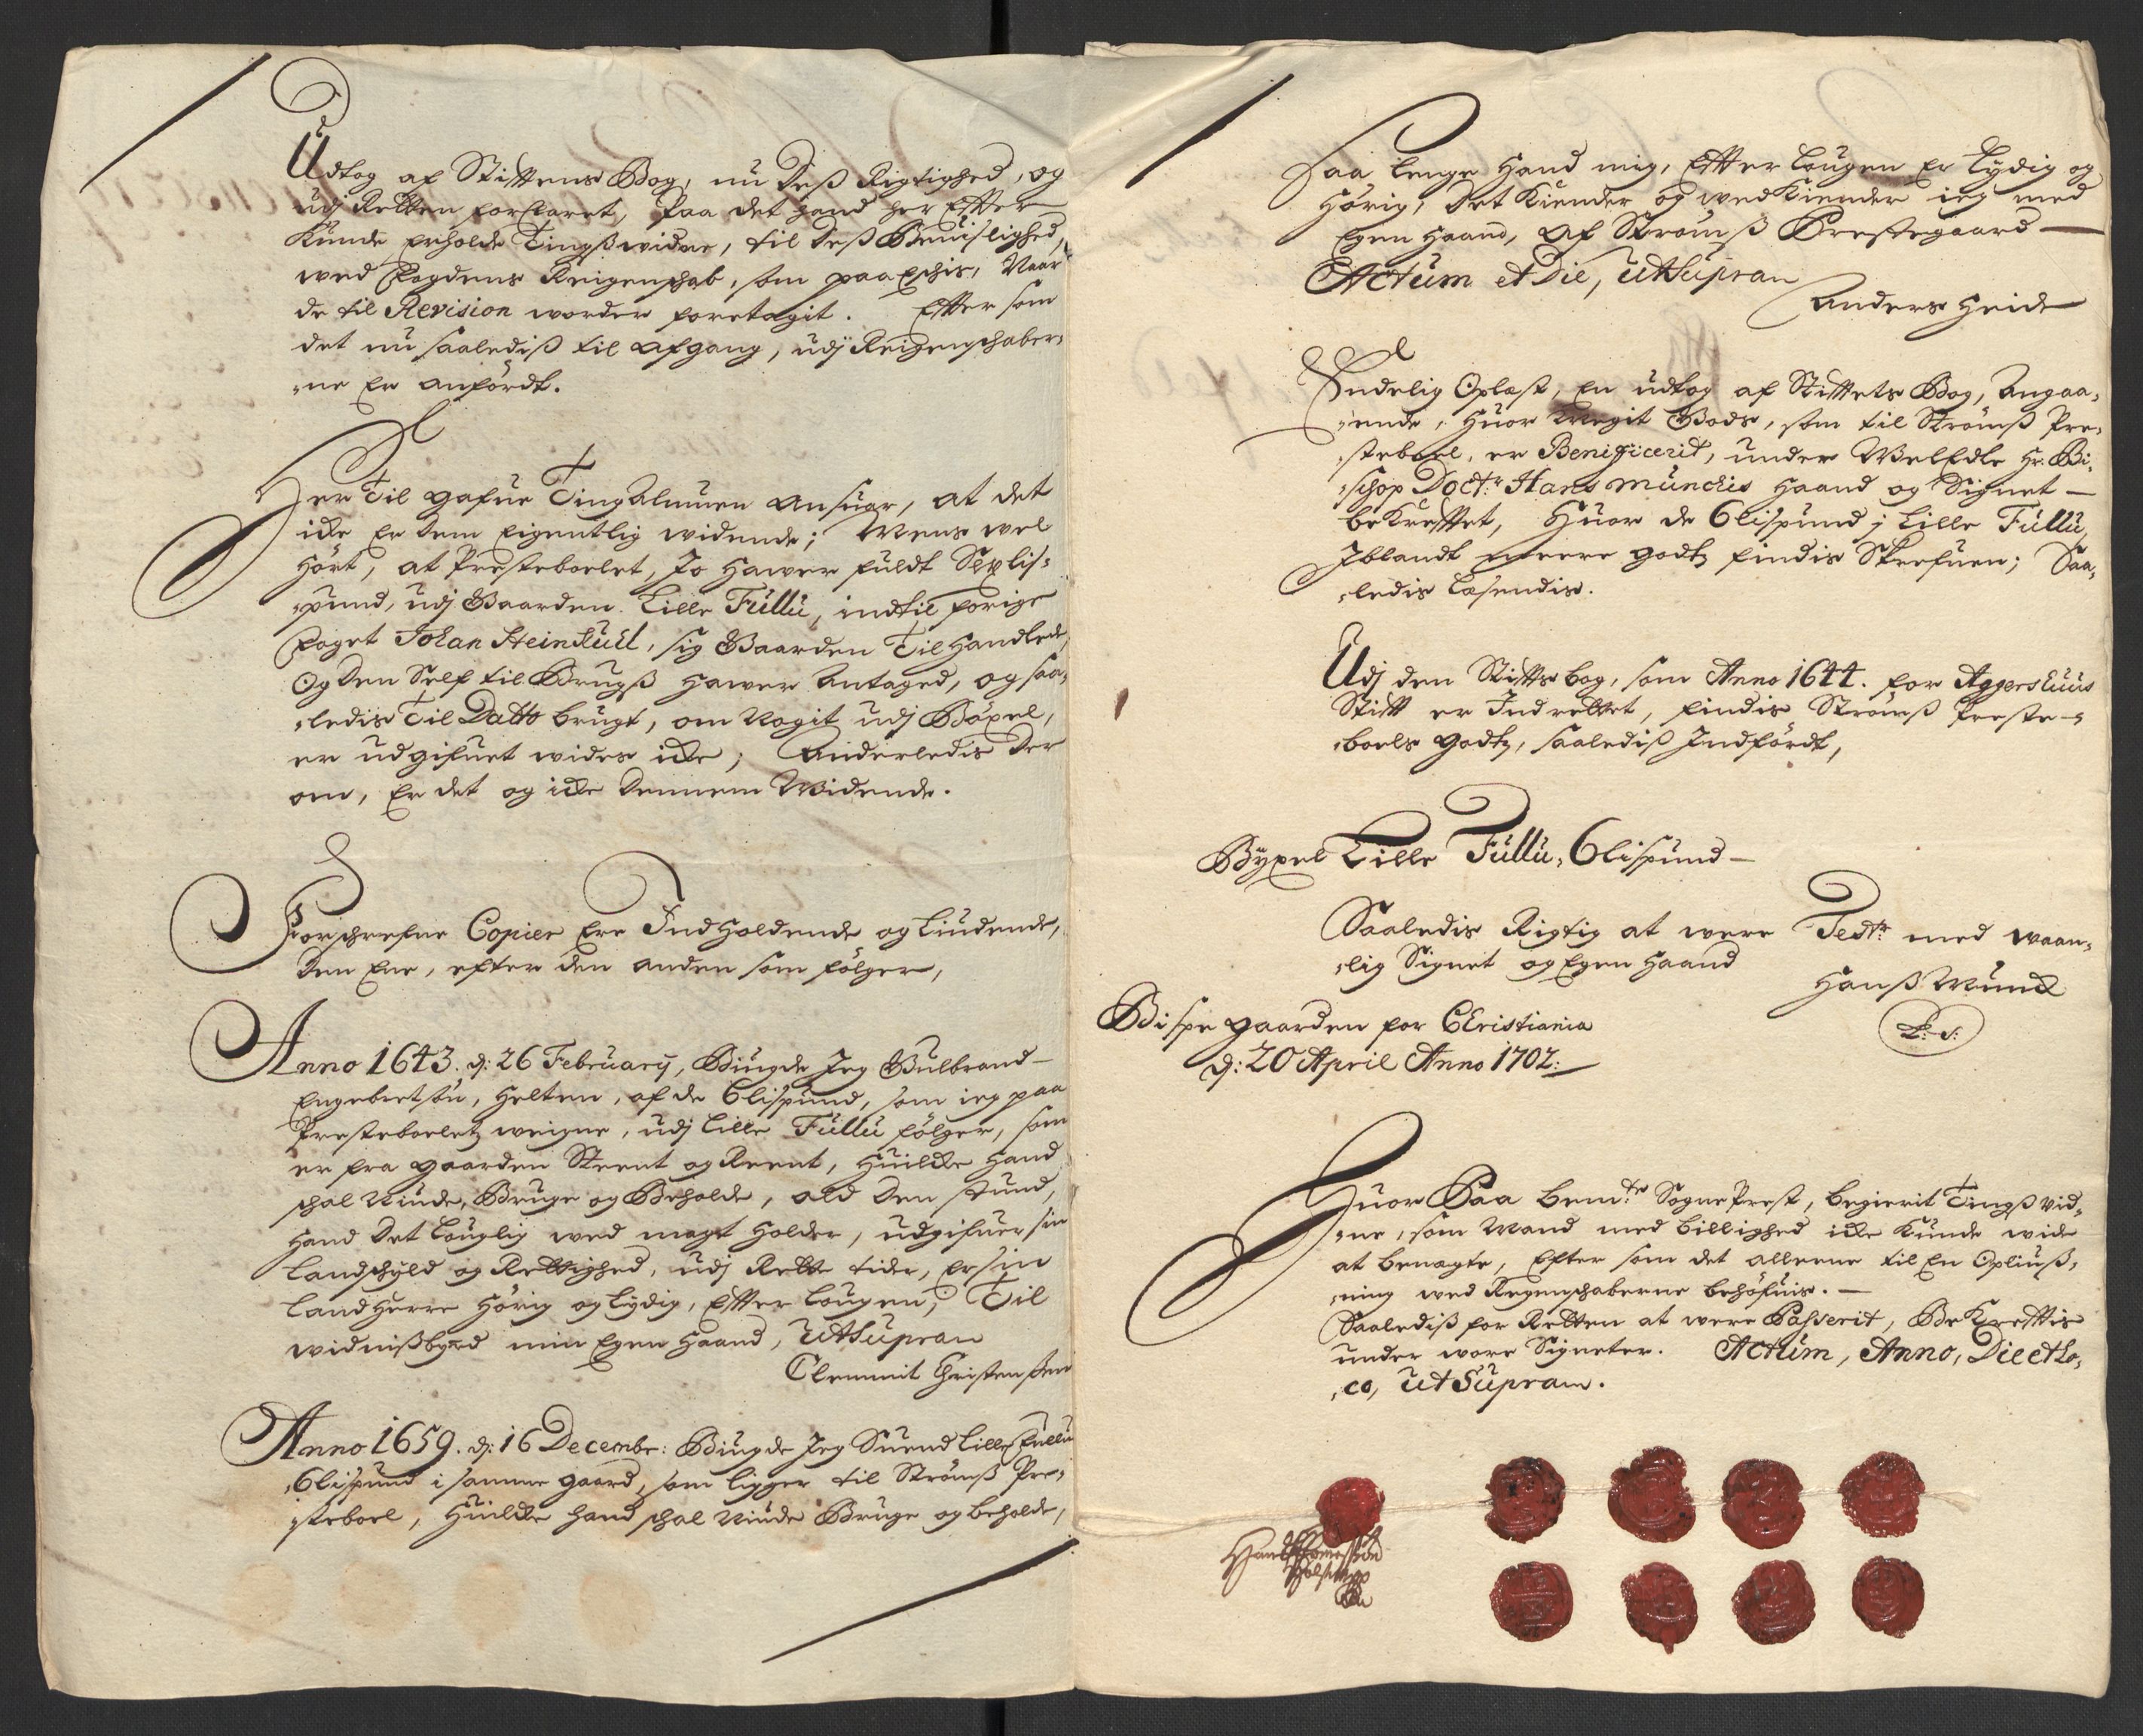 Udtog af Stifftens Bog, nu Deß Rigtighed, og
udj Retten forklaret, Paa det hand her Effter
Kunde Erholde Tingßwidne, til Deß Bevislighed,
wed Fogdens Reigenskab, som paa Eschis, Naar
de til Revision worder foretagit. Effter som
det nu saalediß til afgang, udj Reigenschaber-
ne Er anfördt.
Her Til gafue Ting Almuen ansuar, at det
icke Er dem Eigentlig widende; Mens wel
hört, at Presteboelet, Jo hawer fuldt Sex lis-
pund, udj Gaarden Lille Füllü, indtil forige
Foget Johan Steinkuul, sig Gaarden Til handlede,
Og den Self til Brugß hawer antaged, og saa-
ledis Til Datto brugt, om Nogit udj Böxel,
er udgifuet wides icke; Anderledis der
om, Er det og icke dennem Widende.
Forschrefne Copier Ere Indholdende og liudende,
den Ene, efter den anden som fölger,
Anno 1643. d: 26 February, Biugde Jeg Gulbrand
Engebretsön, helten, af de 6 lispund, som ieg paa
Presteboeletz weigne, udj lille Füllü fölger, som
er fra gaarden Steent og Reent, huilcke hand
schal Niude, Bruge og Beholde, ald den stund,
hand det louglig wed magt holder, udgifuer sin
Landschyld og Rettighed, udj Rette tider, Er sin
Landherre hörig og lydig, Effter lougen; Til
widnißbyrd min Egen haand, Ut Supran
Clemmit Christensen
Anno 1659. d: 16 Decembr: Biugde Jeg Suend lille Füllü
6 lispund i samme gaard, som ligger til Strömß Pre-
steboel, huilcke hand schal Niude Bruge og beholde,
Saa lenge hand mig, Effter lougen Er lydig og
hörig, Det Kiender og wedkiender ieg med
Egen haand, Af Strömß Prestegaard
Actum et Die, Ut Supran
Anders Heide
Endelig Oplæst, En udtog af Stifftets Bog, Angaa-
ende, huor Megit Gods, som til Strömß Pre-
steboel, er Benificerit, under WelEdle Hr. Bi-
schop Doctr Hans Münchis haand og Signet
bekrefftet, huor de 6 lispund j Lille Füllü
Iblandt meere godtz findis Skrefuen; Saa-
ledis læsendis.
Udj den Stiffts bog, som Anno 1644. for Aggershuus
Stifft er Indrettet, findis Strömß Preste-
boels godtz, saalediß Indfördt,
Byxel Lille Füllü, 6 lispund
Saaledis Rigtig at were Testr med waan-
lig Signet og Egen haand
Hanß Munck
L: S:
Bispe gaarden for Christiania
d: 20 April Anno 1702:
Huor Paa bemte Sogne Prest, begierit Tingß vid-
ne, som Mand med billighed icke Kunde wide
at benægte, Efter som det alleene til En Opliuß-
ning wed Regenschaberne behöfuis.
Saalediß for Retten at were Passerit, Bekrefftis
under wore Signeter. Actum, Anno, Die et Lo-
co, Ut Supram.